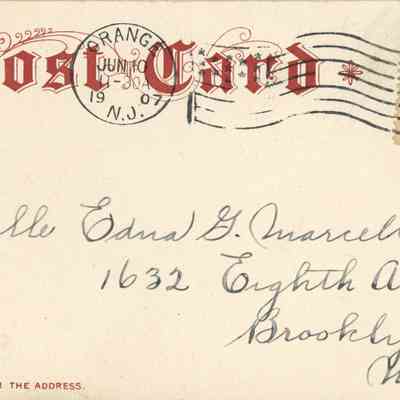 ost Card
ORANGE
JUN 10
11-30A
19 07
N.J.
lle Edna G. Marcell
1632 Eighth A
Brookly
THE ADDRESS.